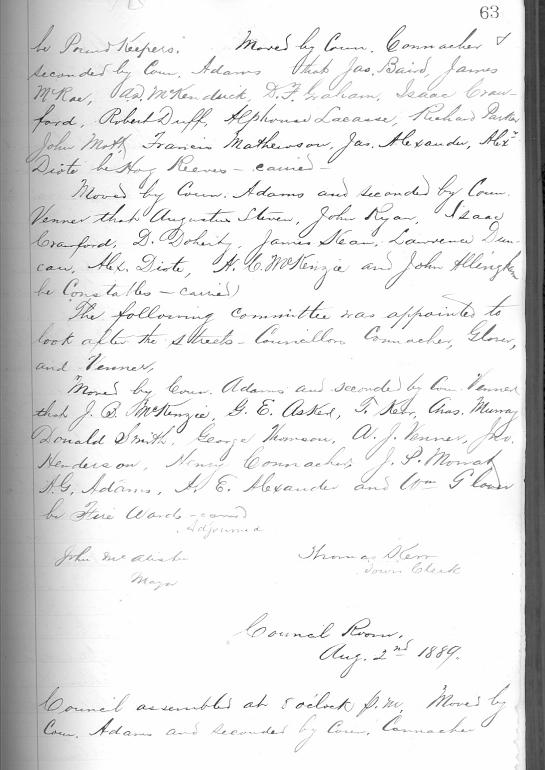 63
be Pound Keepers. Moved by Coun. Connacher &
seconded by Coun. Adams that Jas. Baird, James
McRae, McKendrick, D. F. Graham, Isaac Craw-
ford, Robert Duff, Alphonse Lacasse, Richard Parker
John Mott, Francis Mathewson, Jas. Alexander, Alexr
Diote be Hog Reeves - carried -
Moved by Coun. Adams and seconded by Coun.
Venner that Augustus Steven, John Ryan, Isaac
Crawford, D. Doherty, James Kean, Lawrence Dun-
can, Alex. Diote, A. C. McKenzie and John Allingham
be Constables - carried
The following committee was appointed to
look after the streets - Councillors Connacher, Glover,
and Venner,
Moved by Coun. Adams and seconded by Coun Venner
that J. B. McKenzie, G. E. Asker, T. Kerr, Chas. Murray
Donald Smith, George Thomson, W. J. Venner, Jno.
Henderson, Henry Connacher, J. P. Mowat,
A. G. Adams, A. E. Alexander and Wm Glover
be Fire Wards - carried
Adjourned
John McAlister Thomas Kerr
Mayor Town Clerk
Council Room,
Aug. 2nd 1889.
Council assembled at 8 o'clock p.m. Moved by
Coun. Adams and seconded by Coun. Connacher